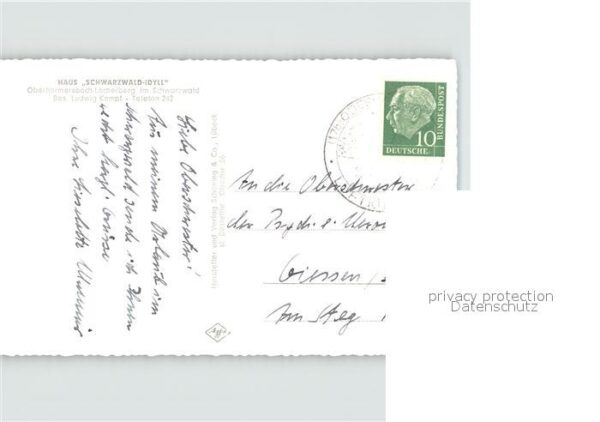 HAUS „SCHWARZWALD-IDYLL"
Oberharmersbach-Löcherberg im Schwarzwald
Bes. Ludwig Kempf - Telefon 242
Liebe Oberschwester!
Aus meinem Urlaub im
Schwarzwald sende ich Ihnen
recht herzl. Grüsse
Ihre Liselotte
Hersteller und Verlag Schöning & Co., Lübeck
Agfa
10
DEUTSCHE
BUNDESPOST
An die Oberschwester
der Psych. u.
Giessen
Am Steg
privacy protection
Datenschutz